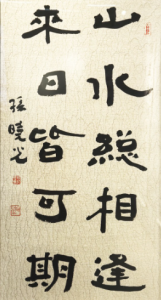 山水総相逢
來日皆可期
孫曉光